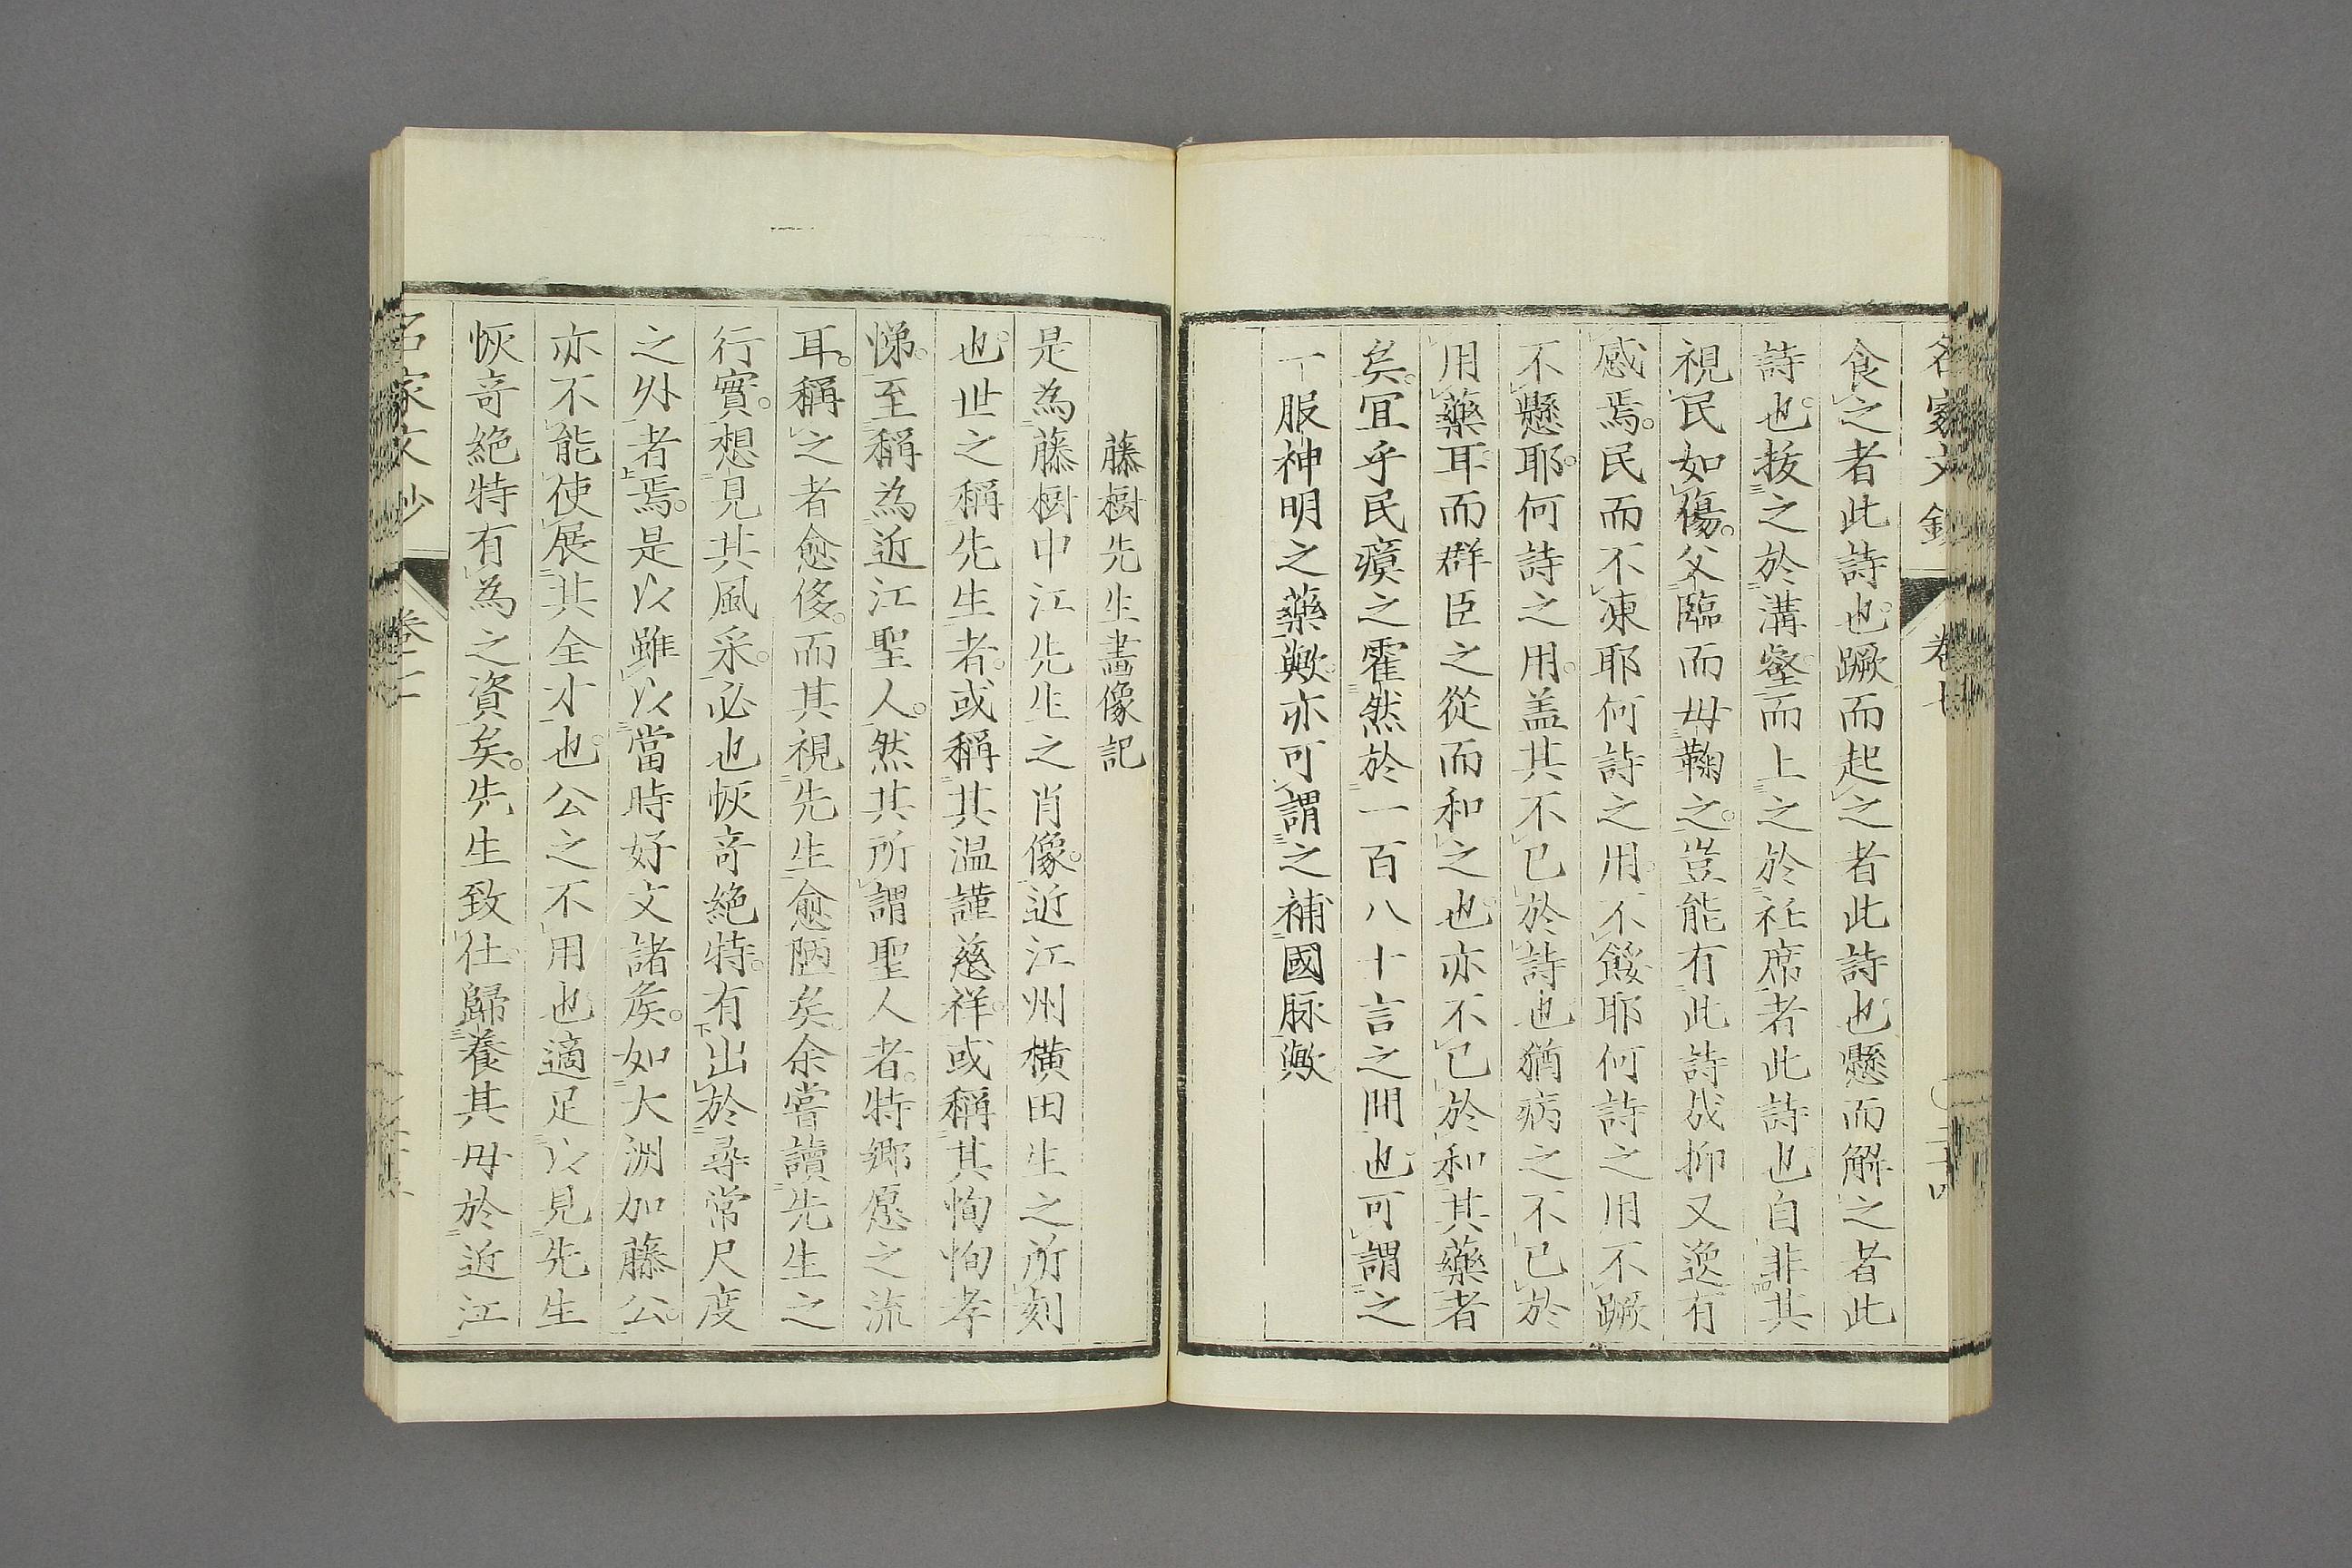 食之者此詩也蹶而起之者此詩也懸而解之者此
詩也拔之於溝壑而上之於袵席者此詩也自非其
視民如傷父臨而母鞠之豈能有此詩哉抑又逸有
感焉民而不凍耶何詩之用不餒耶何詩之用不蹶
不懸耶何詩之用盖其不已於詩也猶病之不已於
用藥耳而群臣之從而和之也亦不已於和其藥者
矣冝乎民瘼之霍然於一百八十言之間也可謂之
一服神明之藥歟亦可謂之補國脉歟
藤樹先生畵像記
是為藤樹中江先生之肖像近江州横田生之所刻
也世之稱先生者或稱其温謹慈祥或稱其恂恂孝
悌至稱為近江聖人然其所謂聖人者特鄉愿之流
耳稱之者愈侈而其視先生愈陋矣余嘗讀先生之
行實想見其風采必也恢奇絶特有出於尋常尺度
之外者焉是以雖以當時好文諸矦如大洲加藤公
亦不能使展其全才也公之不用也適足以見先生
恢奇絶特有為之資矣先生致仕歸養其母於近江